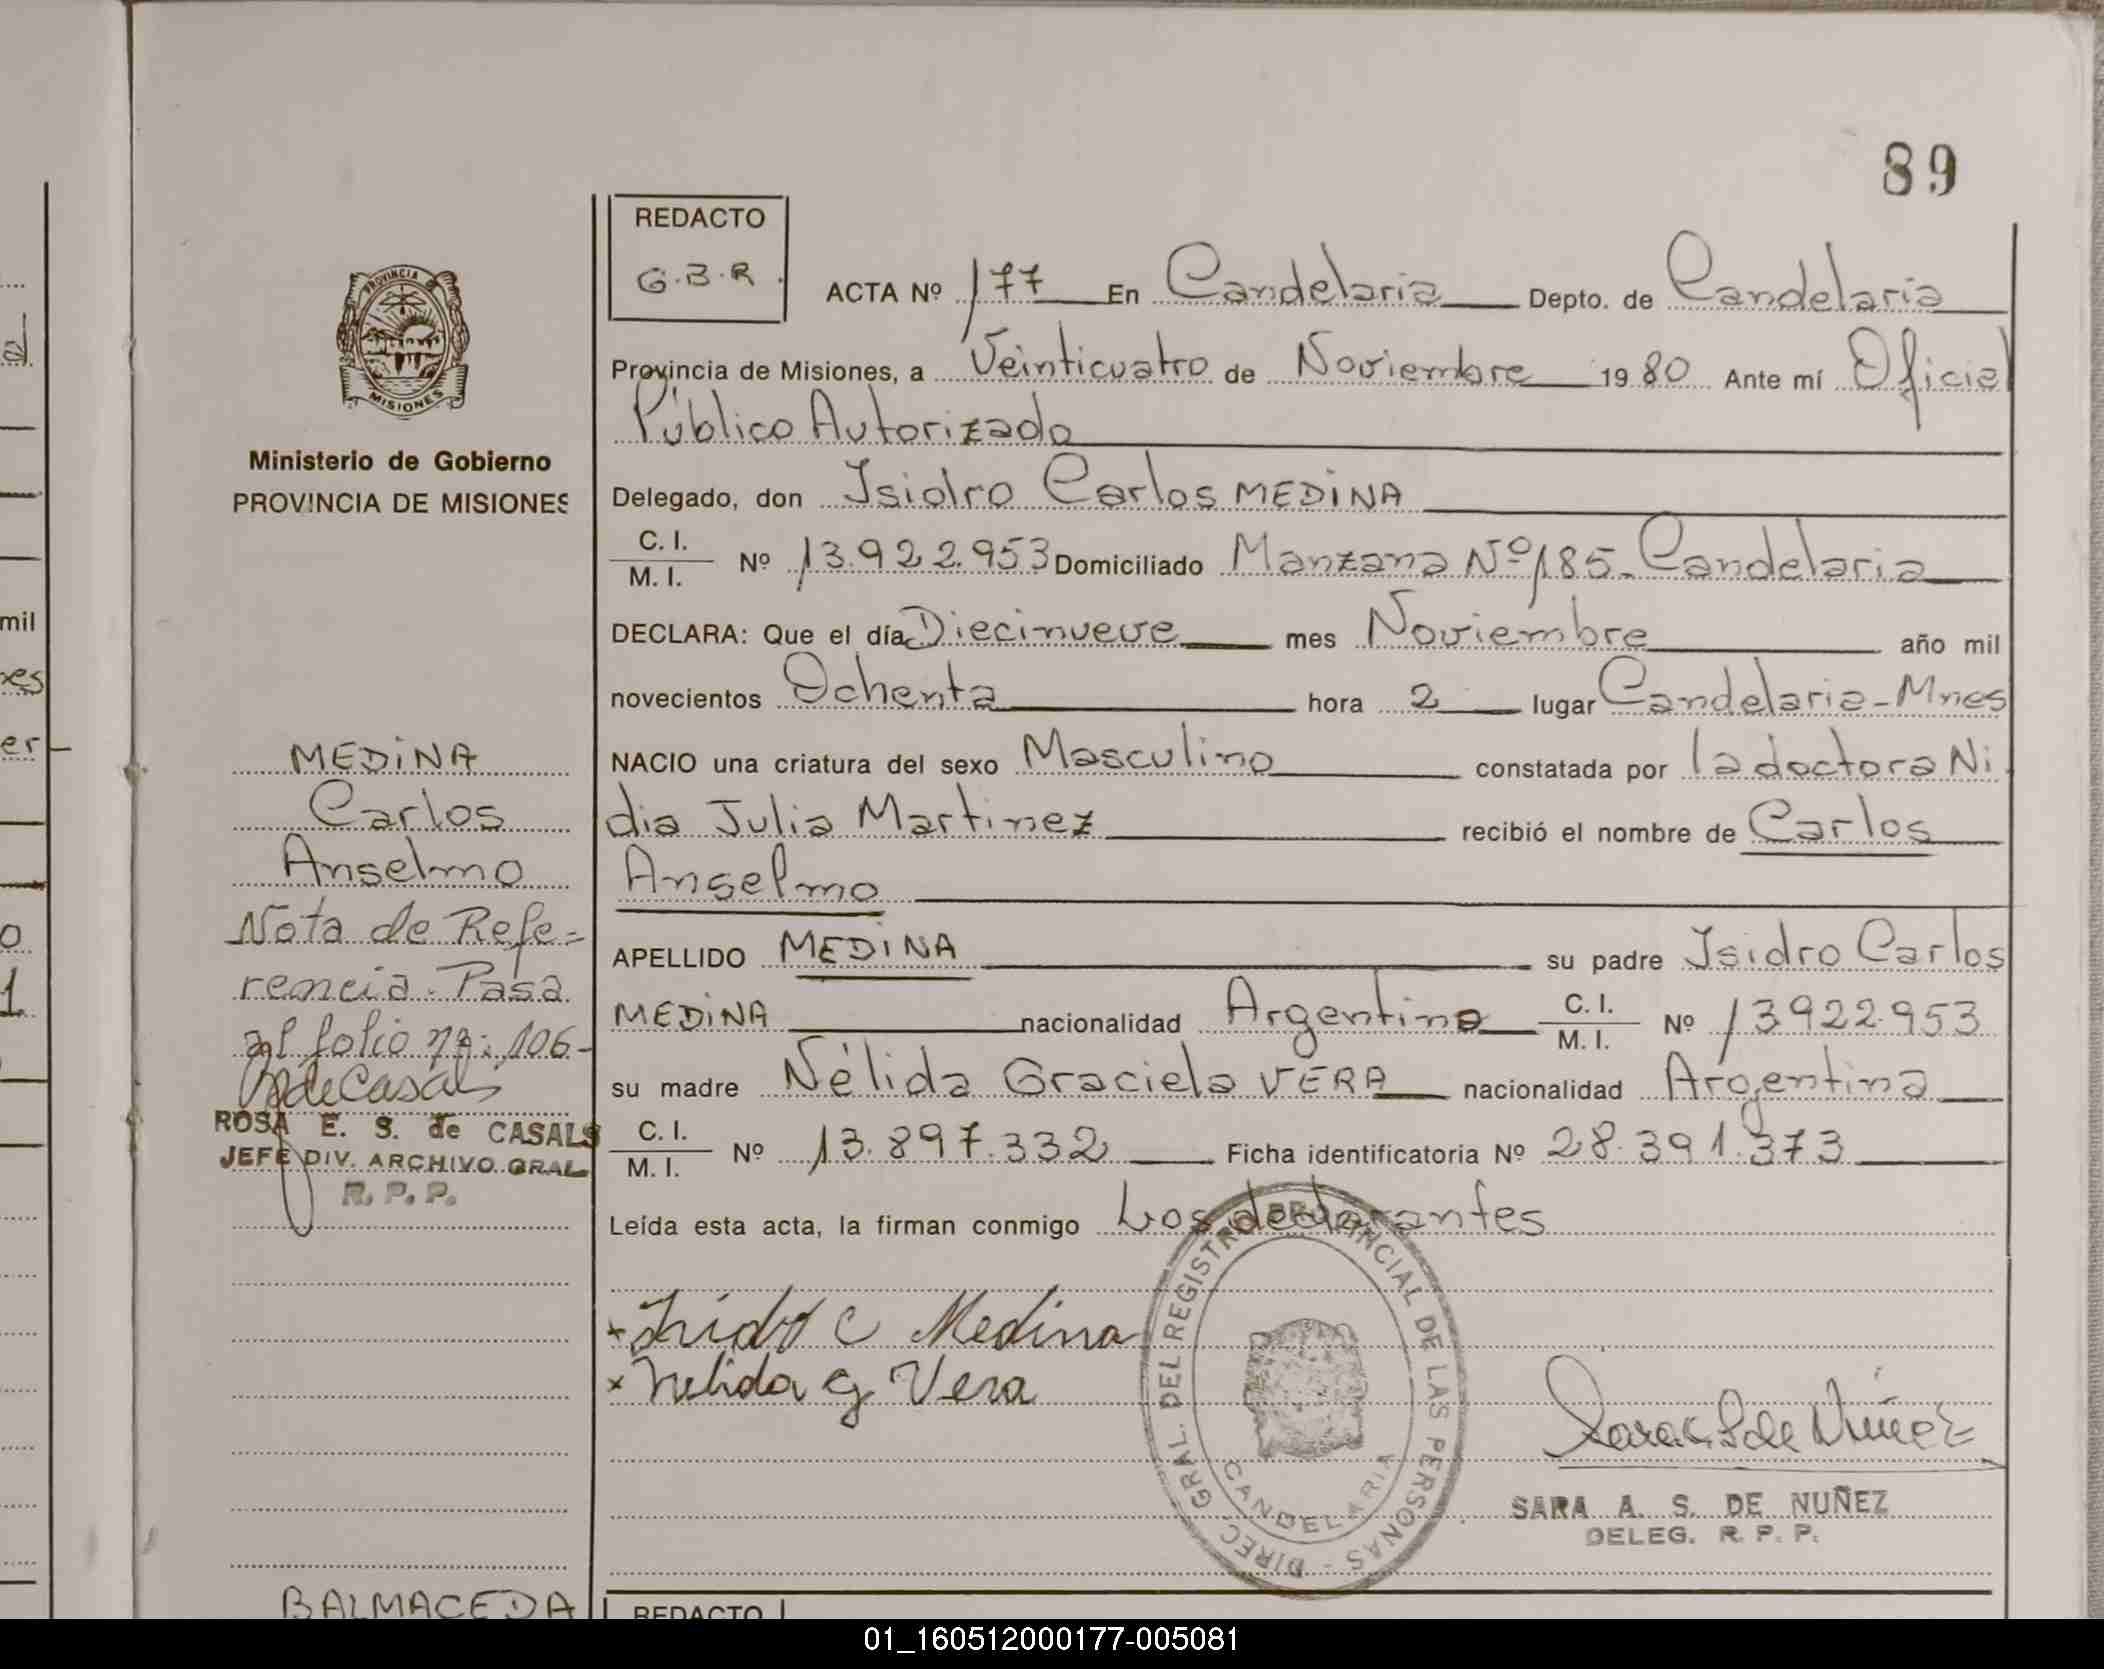 89
REDACTO
G.B.R.
ACTA Nº 177 En Candelaria Depto. de Candelaria
Provincia de Misiones, a Veinticuatro de Noviembre 1980 Ante mí Oficial
Público Autorizado
Delegado, don Isidro Carlos MEDINA
C. I.
M. I.
Nº 13.922.953 Domiciliado Manzana Nº 185- Candelaria
DECLARA: Que el día Diecinueve mes Noviembre año mil
novecientos Ochenta hora 2 lugar Candelaria-Mnes
NACIO una criatura del sexo Masculino constatada por la doctora Ni
dia Julia Martinez recibió el nombre de Carlos
Anselmo
APELLIDO MEDINA su padre Isidro Carlos
MEDINA nacionalidad Argentino C. I. M. I. Nº 13922.953
su madre Nélida Graciela VERA nacionalidad Argentina
C. I.
M. I.
Nº 13.897.332 Ficha identificatoria Nº 28.391.373
Leída esta acta, la firman conmigo Los declarantes
x Isidro C Medina
x Nelida G Vera
DIREC. GRAL. DEL REGISTRO PROVINCIAL DE LAS PERSONAS -
CANDELARIA
SARA A. S. DE NUÑEZ
DELEG. R. P. P.
REDACTO
PROVINCIA
MISIONES
Ministerio de Gobierno
PROVINCIA DE MISIONES
MEDINA
Carlos
Anselmo
Nota de Refe=
rencia. Pasa
al folio nº: 106-
ROSA E. S. de CASALS
JEFE DIV. ARCHIVO GRAL
R. P. P.
BALMACEDA
mil
er-
01_160512000177-005081